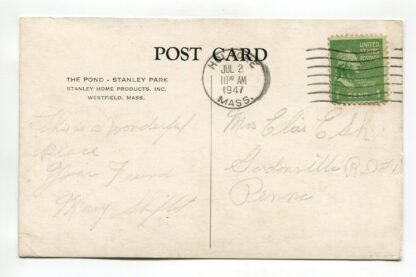 POST CARD
THE POND - STANLEY PARK
STANLEY HOME PRODUCTS, INC.
WESTFIELD, MASS.
JUL 2
10 AM
1947
MASS.
UNITED
STATES
POSTAGE
This is a wonderful
place
Your Friend
Mary
Mrs Elias Esh
Gordonville R D #1
Penna